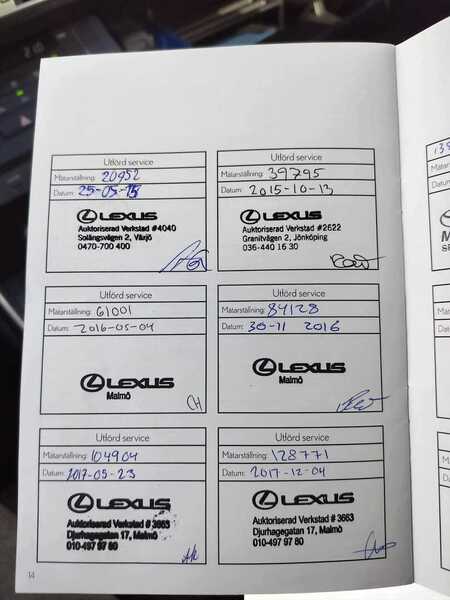 Utförd service
Mätarställning: 20952
Datum: 25-05-15
LEXUS
Auktoriserad Verkstad #4040
Solängsvägen 2, Växjö
0470-700 400
Utförd service
Mätarställning: 39795
Datum: 2015-10-13
LEXUS
Auktoriserad Verkstad #2622
Granitvägen 2, Jönköping
036-440 16 30
Utförd service
Mätarställning: 61001
Datum: 2016-05-04
LEXUS
Malmö
CH
Utförd service
Mätarställning: 84128
Datum: 30-11 2016
LEXUS
Malmö
Utförd service
Mätarställning: 104904
Datum: 2017-05-23
LEXUS
Auktoriserad Verkstad # 3663
Djurhagegatan 17, Malmö
010-497 97 80
Utförd service
Mätarställning: 128771
Datum: 2017-12-04
LEXUS
Auktoriserad Verkstad # 3663
Djurhagegatan 17, Malmö
010-497 97 80
14